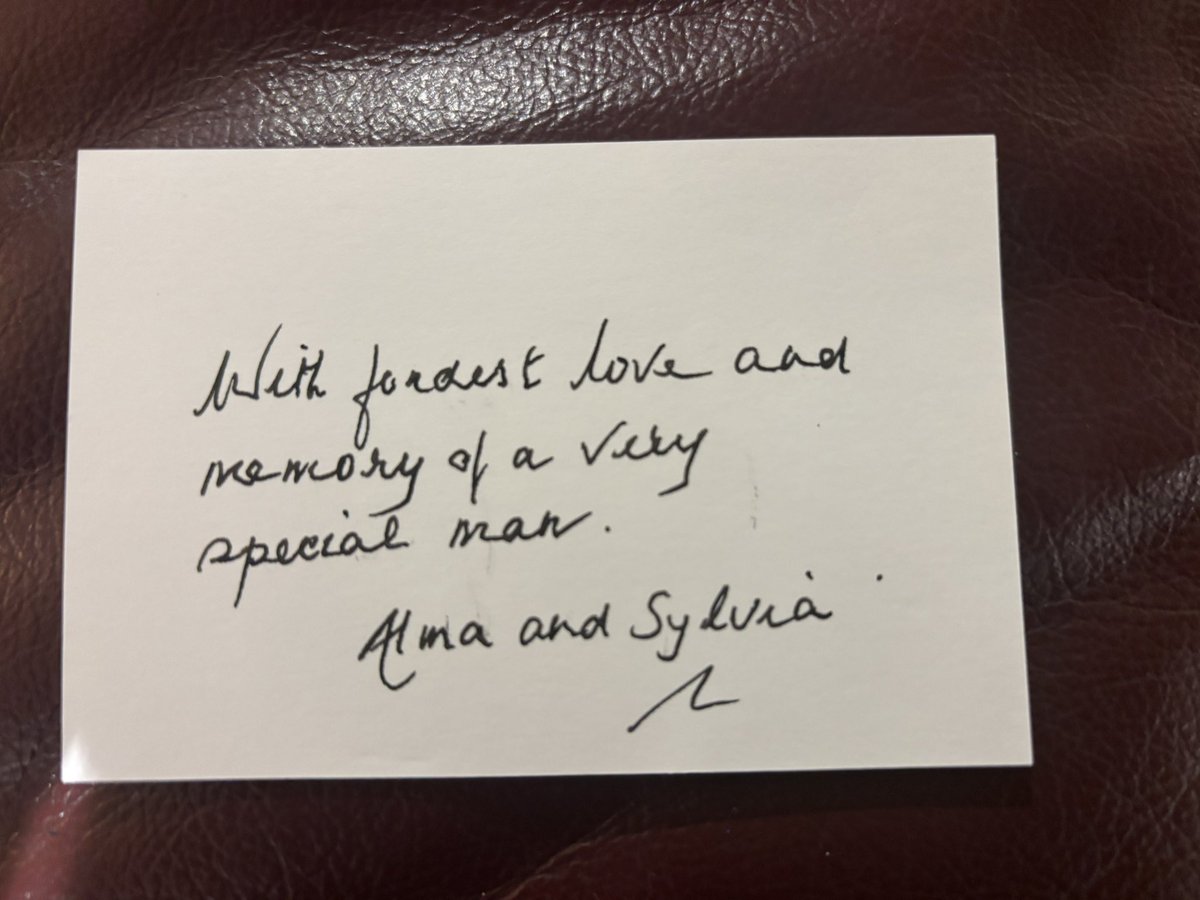 With fondest love and
memory of a very
special man.
Alma and Sylvia